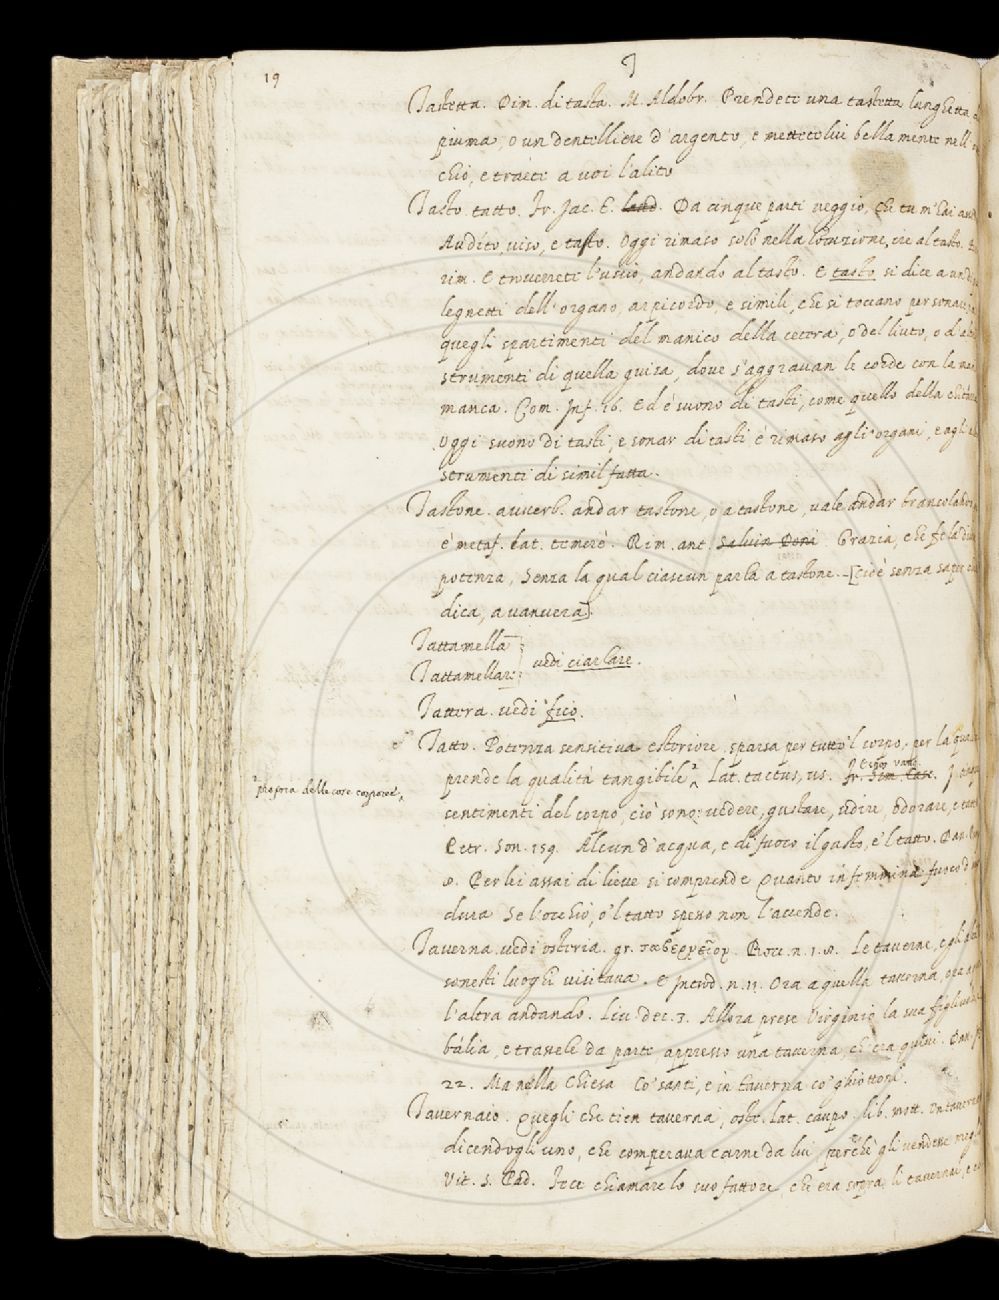 19
T
Tastetta. Dim. di tasta. M. Aldobr. Prendete una tastetta lunghetta
piuma, o un dentelliere d'argento, e mettetelvi bellamente nell'
chio, e traete a voi l'alito
Tasto. tatto. Fr. Jac. T. Da cinque parti veggio, che tu m'hai
Audito, viso, e tasto. Oggi rimaso solo nella locuzione, ire al tasto.
rim. E troverete l'uscio, andando al tasto. E tasto si dice a
legnetti dell'organo, arpicordo, e simili, che si toccano per sonare
quegli spartimenti del manico della cetera, o del liuto, o d'
strumenti di quella guisa, dove s'aggravan le corde con la
manca. Com. Inf. 16. Ed è suono di tasti, come quello della
Oggi suono di tasti, e sonar di tasti è rimaso agli organi, e agli
strumenti di simil fatta.
Tastone. avverb. andar tastone, o a tastone, vale andar brancolando
è metaf. Lat. temerè. Rim. ant. Salvin Doni Grazia, che fe la
potenza, Senza la qual ciascun parla a tastone. [cioè senza saper
dica, a vanvera].
Tattamella
Tattamellare vedi ciarlare.
Tattera. vedi fico.
Tatto. Potenza sensitiva esteriore, sparsa per tutto'l corpo, per la quale
prende la qualità tangibile Lat. tactus, us. Fr. Sim. Casc.
propria delle cose corporee
sentimenti del corpo, ciò sono: vedere, gustare, udire, odorare, e
Petr. Son. 159. Alcun d'acqua, e di fuoco il gusto, e'l tatto. Dan.
8. Per lei assai di lieve si comprende Quanto in femmina fuoco d'
dura Se l'occhio, o'l tatto spesso non l'accende.
Taverna. vedi osteria. gr. Bocc. n. 1. 8. Le taverne, e gli
sonesti luoghi visitava. E Introd. n. 11. Ora a quella taverna, ora a
l'altra andando. Liv. Dec. 3. Allora prese Virginio la sua figliuola
bàlia, e trassele da parte appresso una taverna, ch'era quivi. Dan.
22. Ma nella Chiesa Co' santi, e in taverna co' ghiottoni.
Tavernaio. Quegli che tien taverna, oste. Lat. caupo. lib. mott.
dicendogli uno, che comperava carne da lui, perchè gli vendesse
Vit. S. Pad. Fece chiamare lo suo fattore, che era sopra li tavernai, e